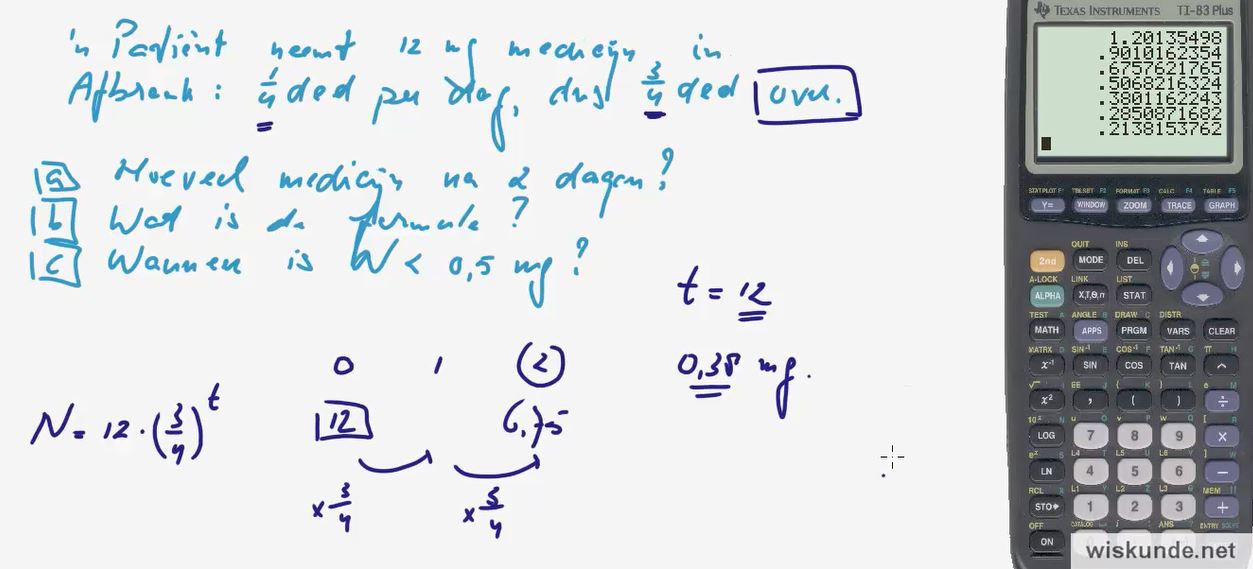 'n Patiënt neemt 12 mg medicijn in
Afbraak: 1/4 deel per dag, dus 3/4 deel over.
a Hoeveel medicijn na 2 dagen?
b Wat is de formule?
c Wanneer is W < 0,5 mg?
t = 12
0,38 mg.
0 1 2
12 6,75
N = 12 · (3/4)^t
× 3/4 × 3/4
TEXAS INSTRUMENTS TI-83 Plus
1.20135498
.9010162354
.6757621765
.5068216324
.3801162243
.2850871682
.2138153762
STAT PLOT F1 TBLSET F2 FORMAT F3 CALC F4 TABLE F5
Y= WINDOW ZOOM TRACE GRAPH
QUIT INS
2nd MODE DEL
A-LOCK LINK LIST
ALPHA X,T,Θ,n STAT
TEST A ANGLE B DRAW C DISTR
MATH APPS PRGM VARS CLEAR
MATRX D SIN⁻¹ E COS⁻¹ F TAN⁻¹ G π H
x⁻¹ SIN COS TAN ^
√ I EE J { K } L e M
x² , ( ) ÷
10ˣ N u O v P w Q [ R
LOG 7 8 9 ×
eˣ S L4 T L5 U L6 V ] W
LN 4 5 6 −
RCL X L1 Y L2 Z L3 θ MEM "
STO▸ 1 2 3 +
OFF CATALOG i ANS ENTRY SOLVE
ON
wiskunde.net